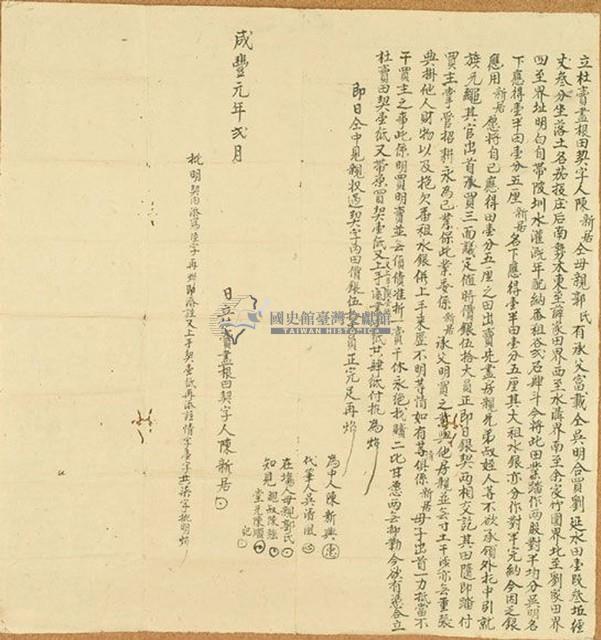 立杜賣盡根田契字人陳新居仝母親郭氏有承父富戴仝吳明合買劉延水田壹段叁坵經
丈叁分坐落土名茄投庄后南勢木東至薛家田界西至水溝界南至余家竹圍界北至劉家田界
四至界址明白自帶陂圳水灌溉年配納番租谷貳石肆斗今將此田業踏作兩股對半均分吳明名
下應得壹半田壹分五厘新居名下應得壹半田壹分五厘其大租水銀亦分作對半完納今因乏銀
應用新居愿將自己應得田壹分五厘之田出賣先盡房親兄弟叔姪人等不欲承領外托中引就
族兄繩其官出首承買三面議定值時價銀伍拾大員正即日銀契兩相交訖其田隨即踏付
買主掌管招耕永為己業保此業委係新居承父明買之業與他房親並無寸土干涉亦無重張
典掛他人財物以及拖欠番租水銀併上手來歷不明等情如有等俱係新居母子出首一力抵當不
干買主之事此係明買明賣並無債價准折一賣千休永絕找贖二比甘愿兩無抑勒今欲有憑合立
杜賣田契壹紙又帶原買契壹紙又上手契紙共肆紙付執為炤
即日仝中見親收過契字內田價銀伍拾大員正完足再炤
為中人陳新興
代筆人吳清風
在場人母親郭氏
知見
堂兄陳順
日立杜賣盡根田契字人陳新居
咸豐元年貳月
批明契內添寫陸字再炤即添註又上手契壹紙再添註情字壹字共柒字批明炤
國史館臺灣文獻館
TAIWAN HISTORICA